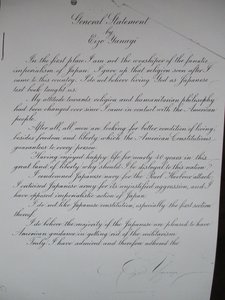 General Statement
by
Eizo Yanagi
In the first place I am not the worshiper of the fanatic
imperialism of Japan. I gave up that religion soon after I
came to this country. I do not believe living God as Japanese
text book taught us.
My attitude towards religion and humanitarian philosophy
had been changed ever since I came in contact with the American
people.
After all, all men are looking for better condition of living,
besides freedom and liberty which the American Constitutions
guarantees to every person.
Having enjoyed happy life for nearly 40 years in this
great land of liberty why should I be disloyal to this nation?
I condemned Japanese navy for the Pearl Harbour attack.
I criticised Japanese army for its unjustified aggression, and I
have opposed imperialistic action of Japan.
I do not like Japanese constitution, especially the first section
thereof.
I do believe the majority of the Japanese are pleased to have
American guidance in getting rid of the militarism.
Truly I have admired and therefore adhered the